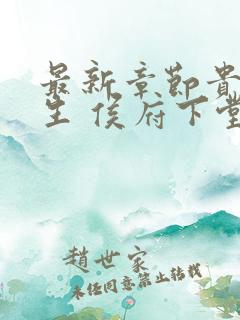 最新章節貴
生 侯府下堂
趙世家
未經同意禁止轉載